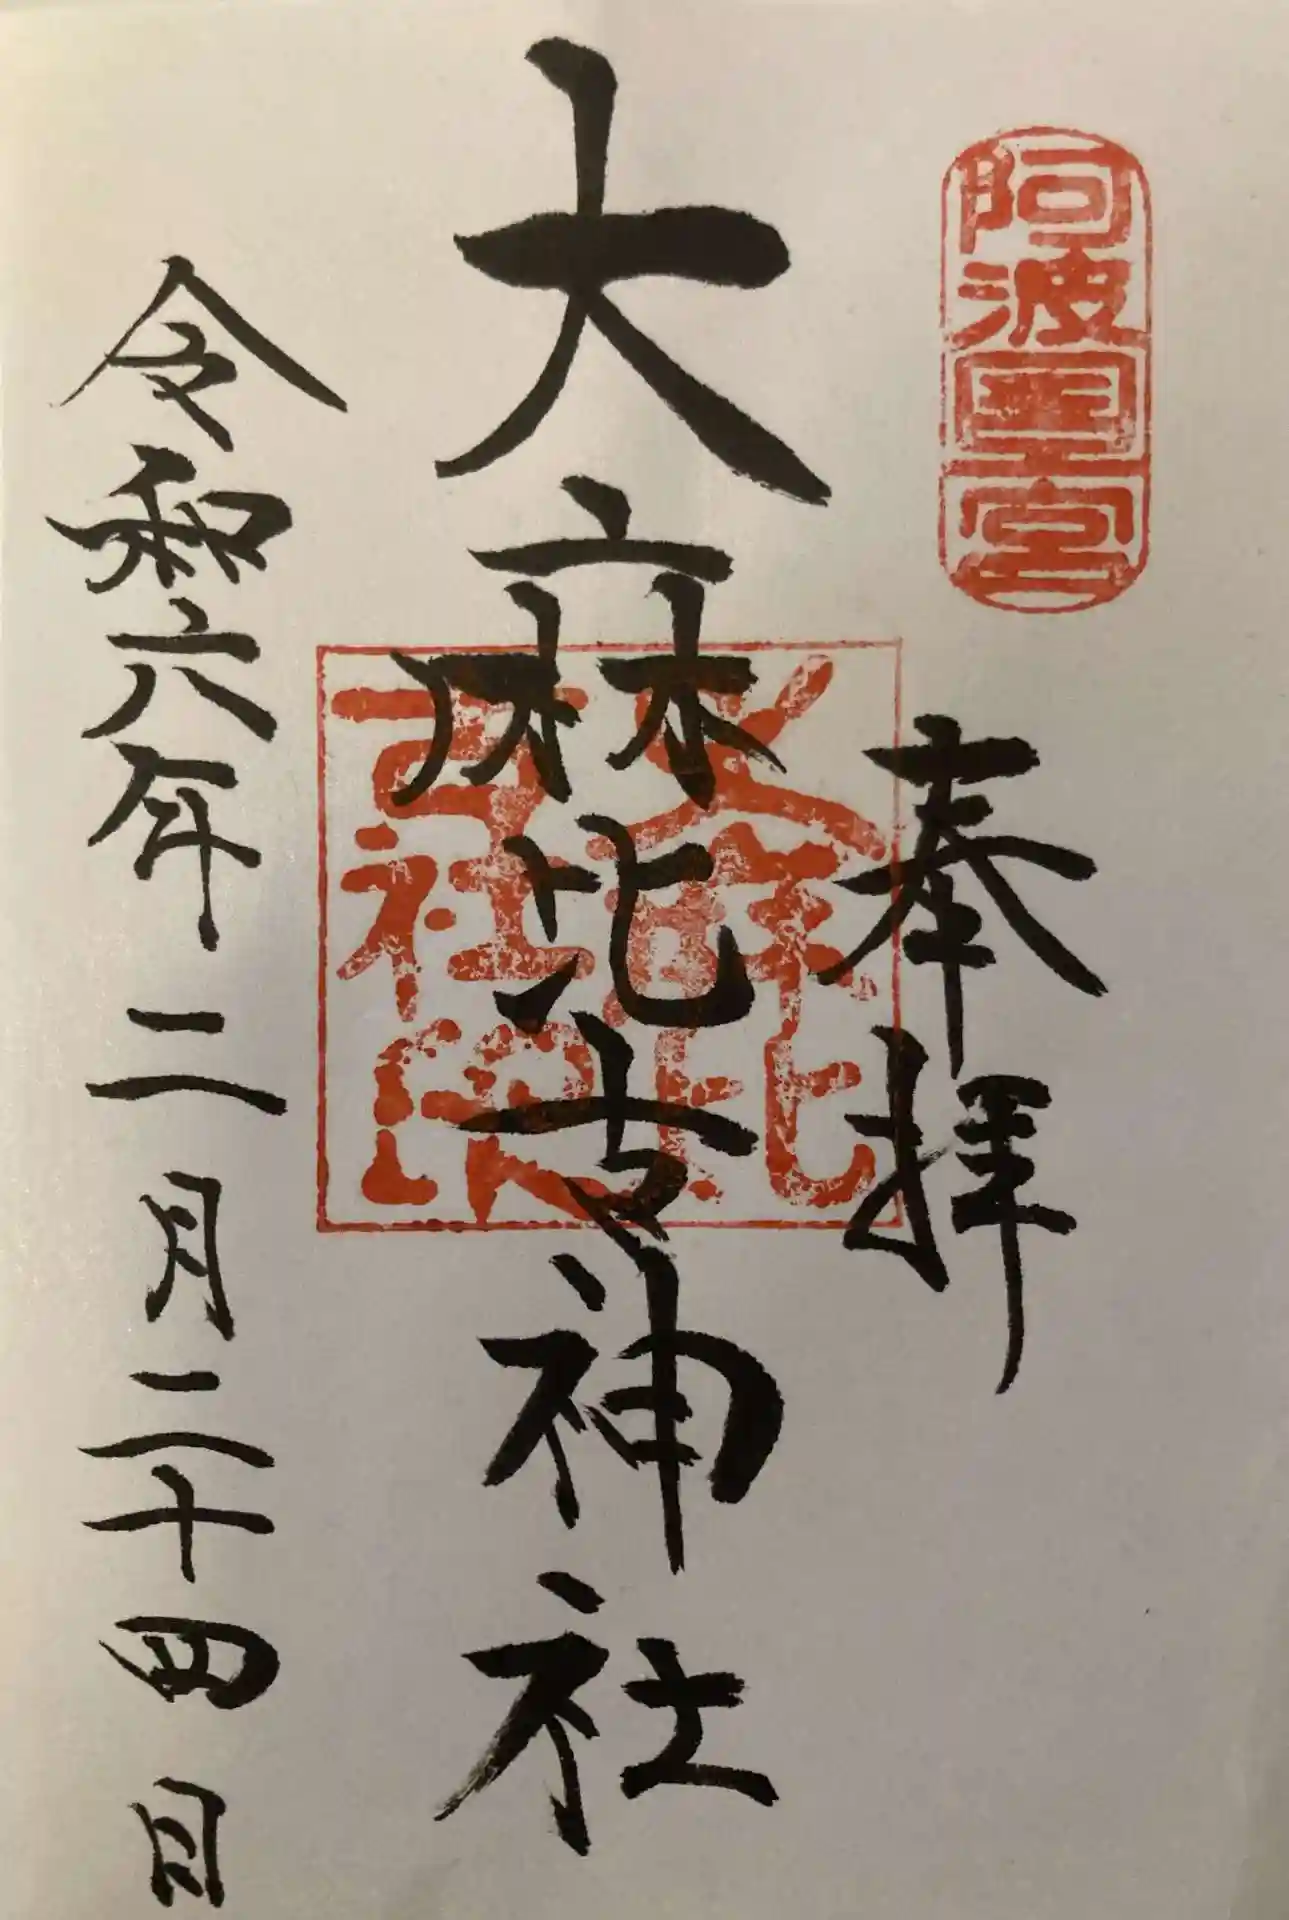 阿波一宮
奉拝
大麻比古神社
大麻比
古社印
令和六年二月二十四日